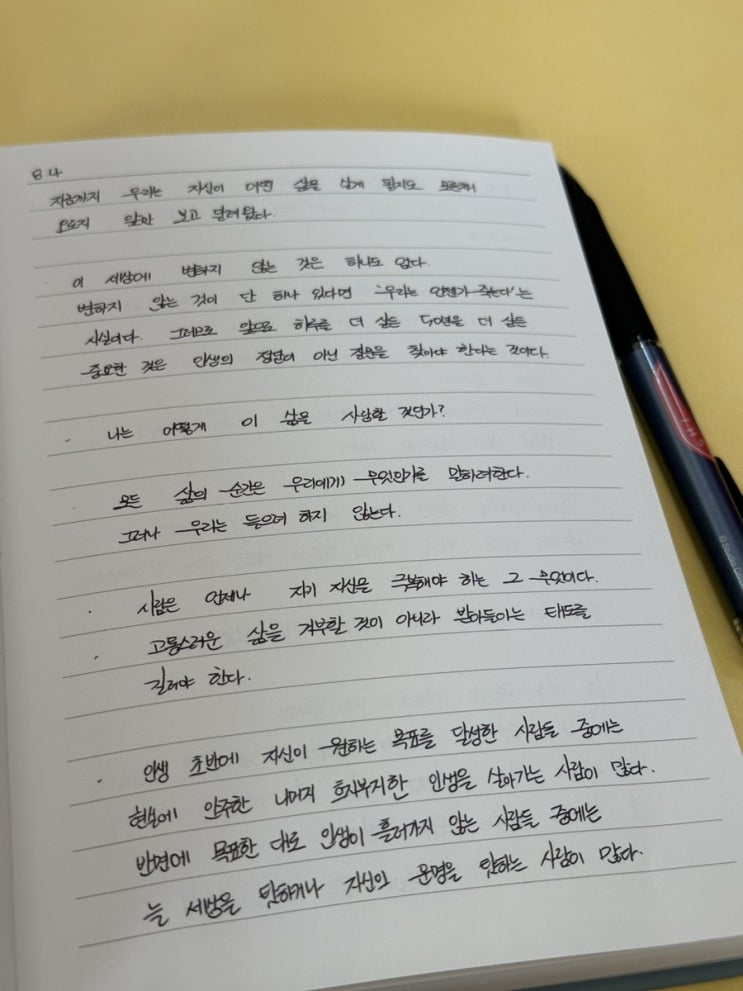 8.4
지금까지 우리는 자신이 어떤 삶을 살게 될지도 모른채
오로지 앞만 보고 달려왔다.
이 세상에 변하지 않는 것은 하나도 없다.
변하지 않는 것이 단 하나 있다면 '우리는 언젠가 죽는다'는
사실이다. 그러므로 앞으로 하루를 더 살든 50년을 더 살든
중요한 것은 인생의 정답이 아닌 질문을 찾아야 한다는 것이다.
나는 어떻게 이 삶을 사랑할 것인가?
모든 삶의 순간은 우리에게 무엇인가를 말하려한다.
그러나 우리는 들으려 하지 않는다.
사람은 언제나 자기 자신을 극복해야 하는 그 무엇이다.
고통스러운 삶을 거부할 것이 아니라 받아들이는 태도를
길러야 한다.
인생 초반에 자신이 원하는 목표를 달성한 사람들 중에는
현실에 안주한 나머지 흐지부지한 인생을 살아가는 사람이 많다.
반면에 목표한 대로 인생이 흘러가지 않는 사람들 중에는
늘 세상을 탓하거나 자신의 운명을 탓하는 사람이 많다.